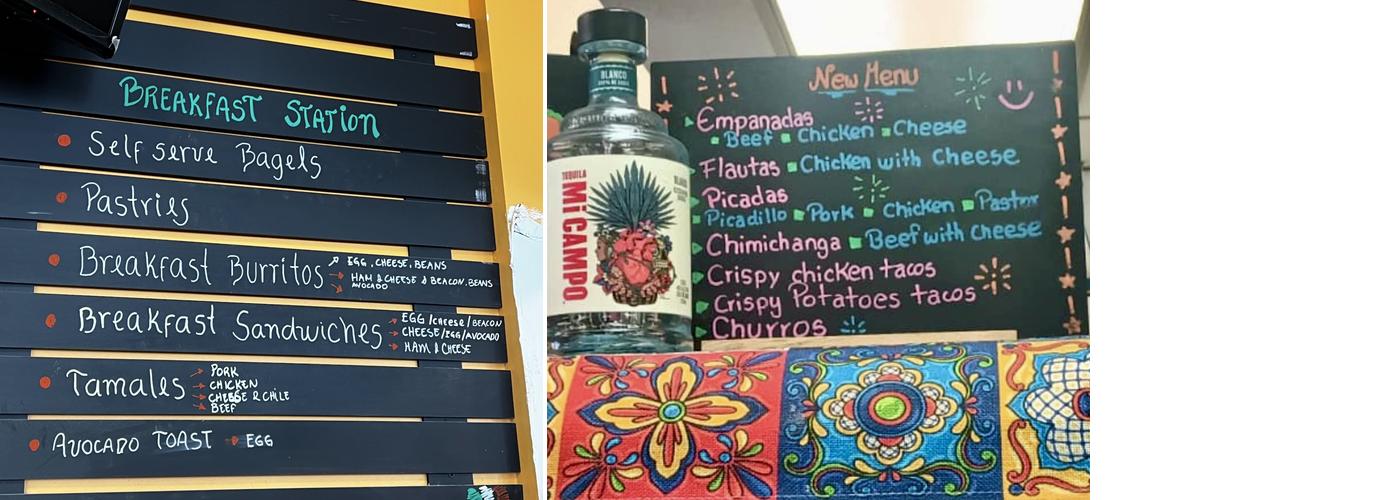 BREAKFAST STATION
Self serve Bagels
Pastries
Breakfast Burritos
EGG, CHEESE, BEANS
HAM & CHEESE & BEACON, BEANS
AVOCADO
Breakfast Sandwiches
EGG/CHEESE/BEACON
CHEESE/EGG/AVOCADO
HAM & CHEESE
Tamales
PORK
CHICKEN
CHEESE & CHILE
BEEF
AVOCADO TOAST EGG
BLANCO
TEQUILA
Mi CAMPO.
New Menu
Empanadas
Beef Chicken Cheese
Flautas Chicken with Cheese
Picadas
Picadillo Pork Chicken Pastor
Chimichanga Beef with Cheese
Crispy chicken tacos
Crispy Potatoes tacos
Churros